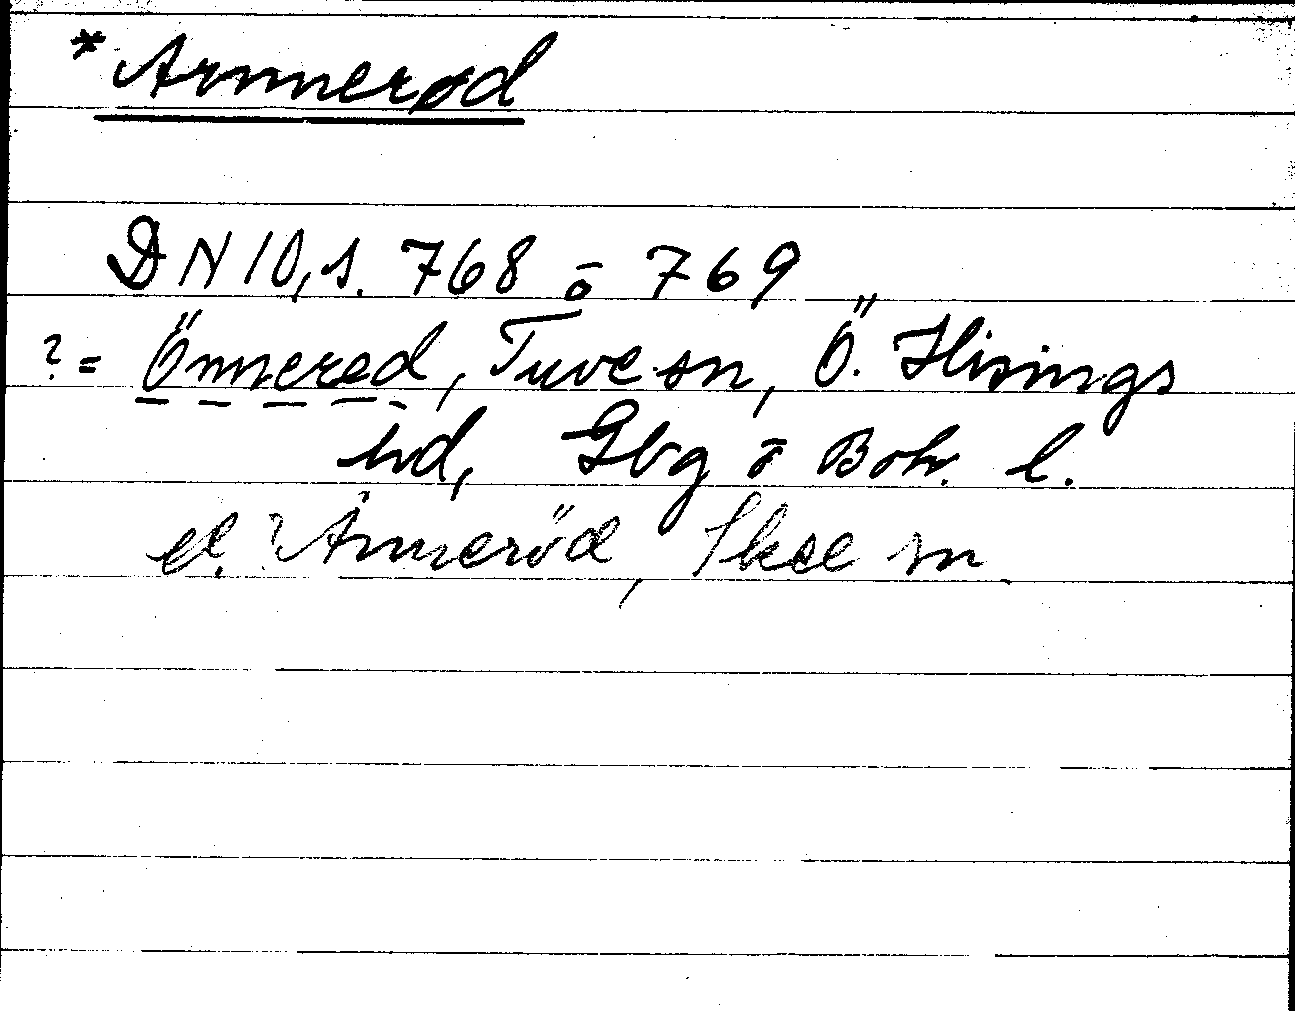 *Arnnerød
DN 10, s. 768 o 769
? = Önnered, Tuve sn, Ö. Hisings
hd, Gbg o Boh. l.
el. ? Ånneröd, Skee sn